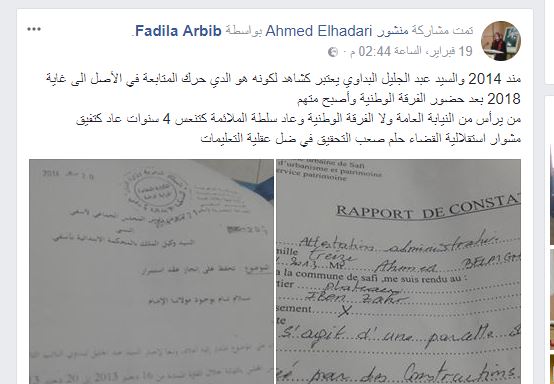 تمت مشاركة منشور Ahmed Elhadari بواسطة Fadila Arbib.
19 فبراير، الساعة 02:44 م
مند 2014 والسيد عبد الجليل البداوي يعتبر كشاهد لكونه هو الدي حرك المتابعة في الأصل الى غاية
2018 بعد حضور الفرقة الوطنية وأصبح متهم
من يرأس من النيابة العامة ولا الفرقة الوطنية وعاد سلطة الملائمة كتنعس 4 سنوات عاد كتفيق
مشوار استقلالية القضاء حلم صعب التحقيق في ضل عقلية التعليمات
السيد وكيل الملك بالمحكمة الابتدائية بأسفي
الموضوع: تحفظ على انجاز عقد استمرار
سلام تام بوجود مولانا الإمام
urbaine de Safi
d'urbanisme et patrimoine
service patrimoine
RAPPORT DE CONSTA
Attestation administrative
2013 Mr Ahmed
a la commune de safi ,me suis rendu au :
plateau
Iben Zahr
sement X
S'agit d'une parcelle
par des Constructions